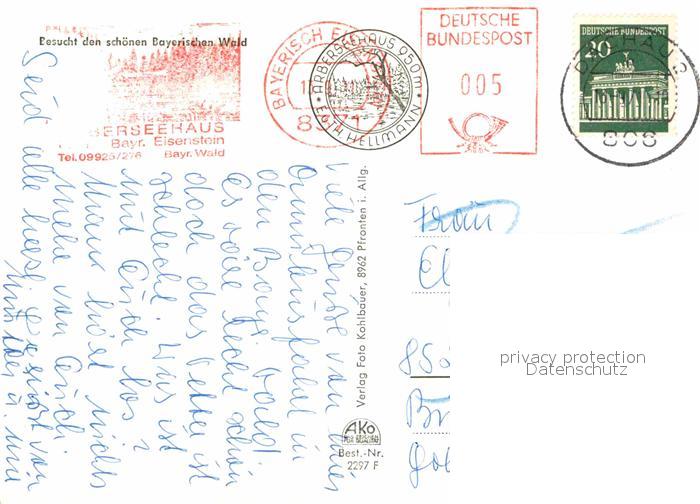 Besucht den schönen Bayerischen Wald
BERSEEHAUS
Bayr. Eisenstein
Tel. 09925/276 Bayr. Wald
BAYERISCH E
8371
ARBERSEEHAUS 950m
EGTM. HELLMANN
DEUTSCHE
BUNDESPOST
005
DEUTSCHE BUNDESPOST
20
808
Viele Grüße von einer
Omnibusfahrt in
den Bayr. Wald!
Es wäre recht schön
doch das Wetter ist
schlecht! Was ist
mit Euch los?
Man hört nichts
mehr von Euch!
Seid alle herzl. gegrüßt von
Verlag Foto Kohlbauer, 8962 Pfronten i. Allg.
AKO
Best.-Nr.
2297 F
Frau
privacy protection
Datenschutz